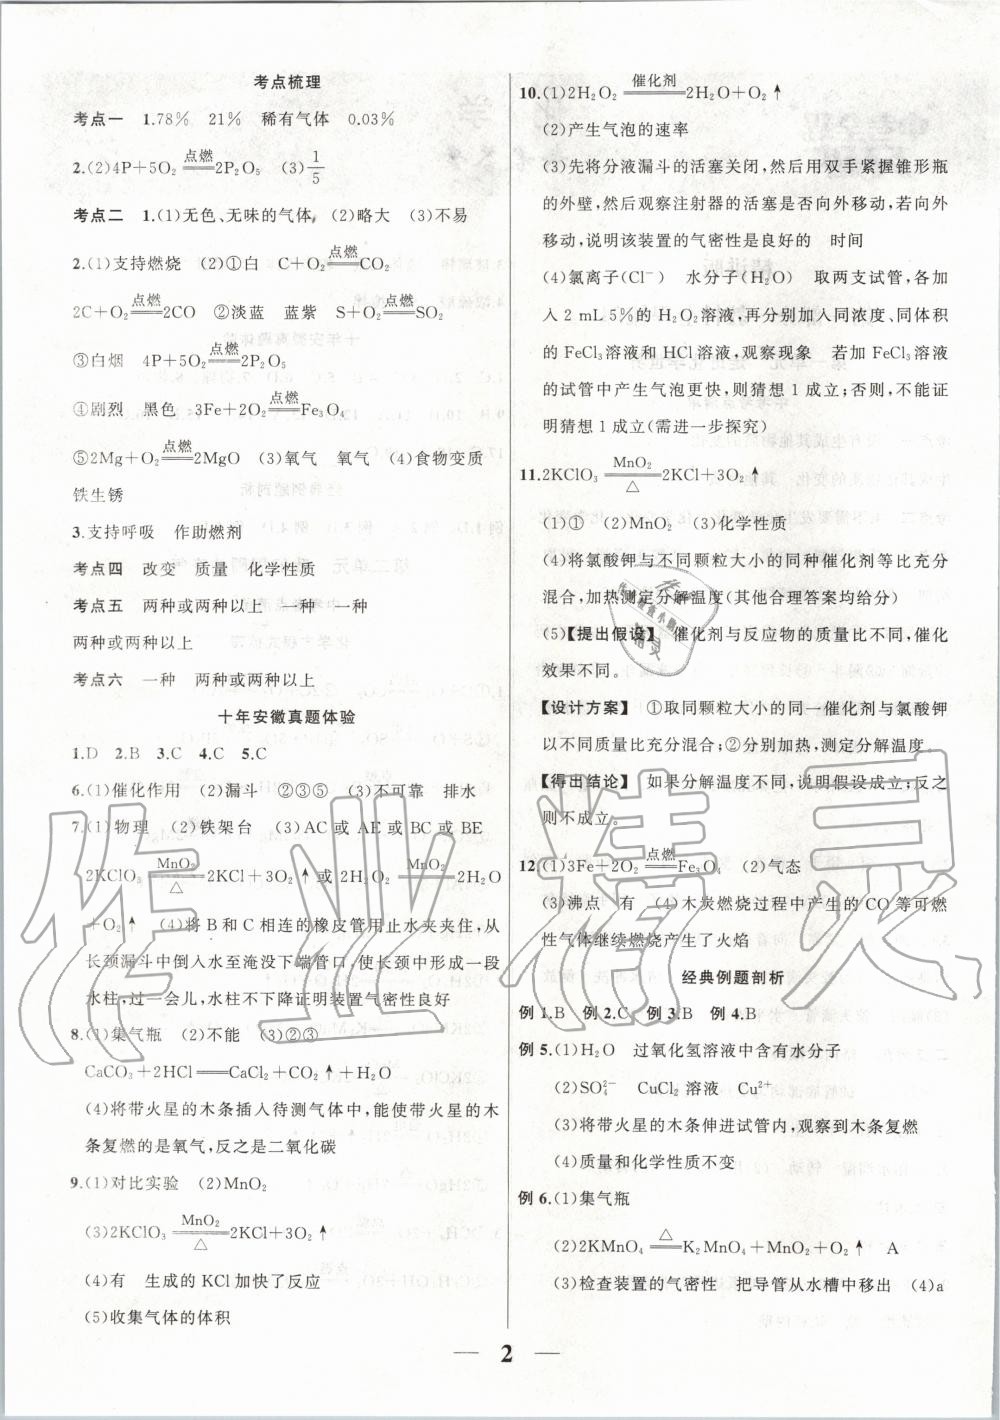 考点梳理
考点一 1.78% 21% 稀有气体 0.03%
2.(2)4P+5O₂ 点燃═══ 2P₂O₅ (3)1/5
考点二 1.(1)无色、无味的气体 (2)略大 (3)不易
2.(1)支持燃烧 (2)①白 C+O₂ 点燃═══ CO₂
2C+O₂ 点燃═══ 2CO ②淡蓝 蓝紫 S+O₂ 点燃═══ SO₂
③白烟 4P+5O₂ 点燃═══ 2P₂O₅
④剧烈 黑色 3Fe+2O₂ 点燃═══ Fe₃O₄
⑤2Mg+O₂ 点燃═══ 2MgO (3)氧气 氧气 (4)食物变质
铁生锈
3.支持呼吸 作助燃剂
考点四 改变 质量 化学性质
考点五 两种或两种以上 一种 一种
两种或两种以上
考点六 一种 两种或两种以上
十年安徽真题体验
1.D 2.B 3.C 4.C 5.C
6.(1)催化作用 (2)漏斗 ②③⑤ (3)不可靠 排水
7.(1)物理 (2)铁架台 (3)AC 或 AE 或 BC 或 BE
2KClO₃ MnO₂═══△ 2KCl+3O₂↑或 2H₂O₂ MnO₂═══ 2H₂O
+O₂↑ (4)将 B 和 C 相连的橡皮管用止水夹夹住,从
长颈漏斗中倒入水至淹没下端管口,使长颈中形成一段
水柱,过一会儿,水柱不下降证明装置气密性良好
8.(1)集气瓶 (2)不能 (3)②③
CaCO₃+2HCl═══CaCl₂+CO₂↑+H₂O
(4)将带火星的木条插入待测气体中,能使带火星的木
条复燃的是氧气,反之是二氧化碳
9.(1)对比实验 (2)MnO₂
(3)2KClO₃ MnO₂═══△ 2KCl+3O₂↑
(4)有 生成的 KCl 加快了反应
(5)收集气体的体积
10.(1)2H₂O₂ 催化剂═══ 2H₂O+O₂↑
(2)产生气泡的速率
(3)先将分液漏斗的活塞关闭,然后用双手紧握锥形瓶
的外壁,然后观察注射器的活塞是否向外移动,若向外
移动,说明该装置的气密性是良好的 时间
(4)氯离子(Cl⁻) 水分子(H₂O) 取两支试管,各加
入 2 mL 5%的 H₂O₂ 溶液,再分别加入同浓度、同体积
的 FeCl₃ 溶液和 HCl 溶液,观察现象 若加 FeCl₃ 溶液
的试管中产生气泡更快,则猜想 1 成立;否则,不能证
明猜想 1 成立(需进一步探究)
11.2KClO₃ MnO₂═══△ 2KCl+3O₂↑
(1)① (2)MnO₂ (3)化学性质
(4)将氯酸钾与不同颗粒大小的同种催化剂等比充分
混合,加热测定分解温度(其他合理答案均给分)
(5)【提出假设】 催化剂与反应物的质量比不同,催化
效果不同。
【设计方案】 ①取同颗粒大小的同一催化剂与氯酸钾
以不同质量比充分混合;②分别加热,测定分解温度。
【得出结论】 如果分解温度不同,说明假设成立;反之
则不成立。
12.(1)3Fe+2O₂ 点燃═══ Fe₃O₄ (2)气态
(3)沸点 有 (4)木炭燃烧过程中产生的 CO 等可燃
性气体继续燃烧产生了火焰
经典例题剖析
例 1.B 例 2.C 例 3.B 例 4.B
例 5.(1)H₂O 过氧化氢溶液中含有水分子
(2)SO₄²⁻ CuCl₂ 溶液 Cu²⁺
(3)将带火星的木条伸进试管内,观察到木条复燃
(4)质量和化学性质不变
例 6.(1)集气瓶
(2)2KMnO₄ △═══ K₂MnO₄+MnO₂+O₂↑ A
(3)检查装置的气密性 把导管从水槽中移出 (4)a
2
作业精灵